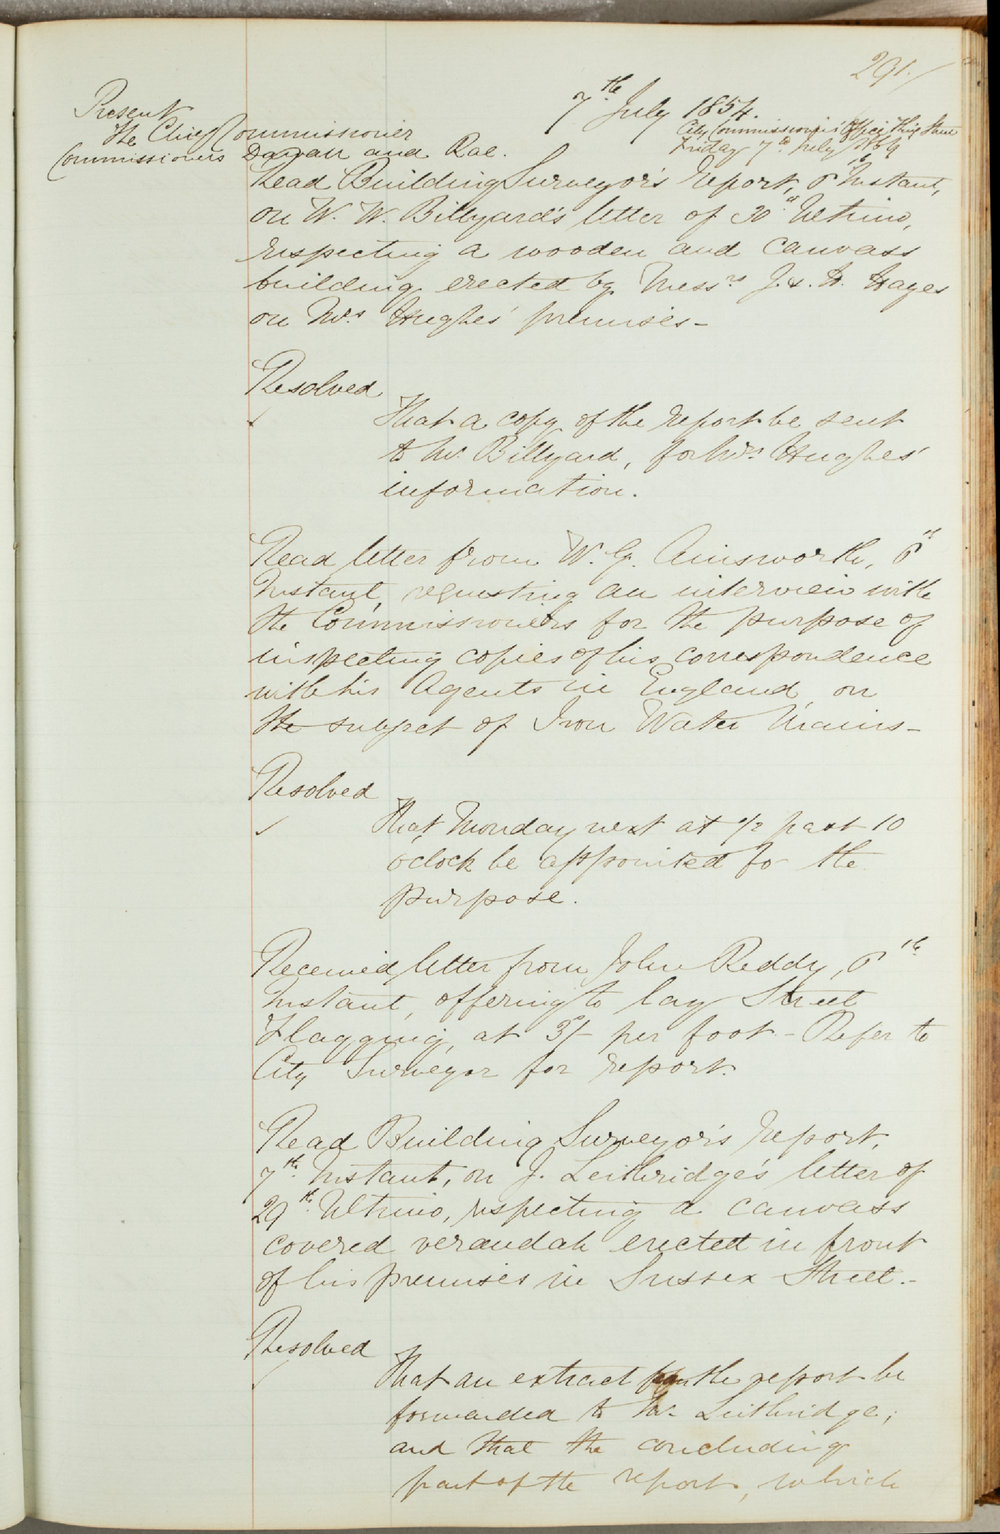 291.
7th July 1854.
City Commissioners' Office King Street
Friday 7th July 1854
Present
The Chief Commissioner
Commissioners Darvall and Rae.
Read Building Surveyor's report, 6th Instant,
on W. W. Billyard's letter of 30th Ultimo,
respecting a wooden and canvass
building erected by Messrs J. & H. Hayes
on Mrs Hughes' premises -
Resolved
That a copy of the report be sent
to Mr Billyard, for Mrs Hughes'
information.
Read letter from W. G. Ainsworth, 6th
Instant, requesting an interview with
the Commissioners for the purpose of
inspecting copies of his correspondence
with his Agents in England on
the subject of Iron Water Mains -
Resolved
That Monday next at 1/2 past 10
o'clock be appointed for the
purpose.
Received letter from John Reddy, 6th
Instant, offering to lay Street
Flagging, at 3/- per foot - Refer to
City Surveyor for report.
Read Building Surveyor's report,
7th Instant, on J. Leithridge's letter of
29th Ultimo, respecting a canvass
covered verandah erected in front
of his premises in Sussex Street. -
Resolved
That an extract from the report be
forwarded to Mr Leithridge;
and that the concluding
part of the report, which